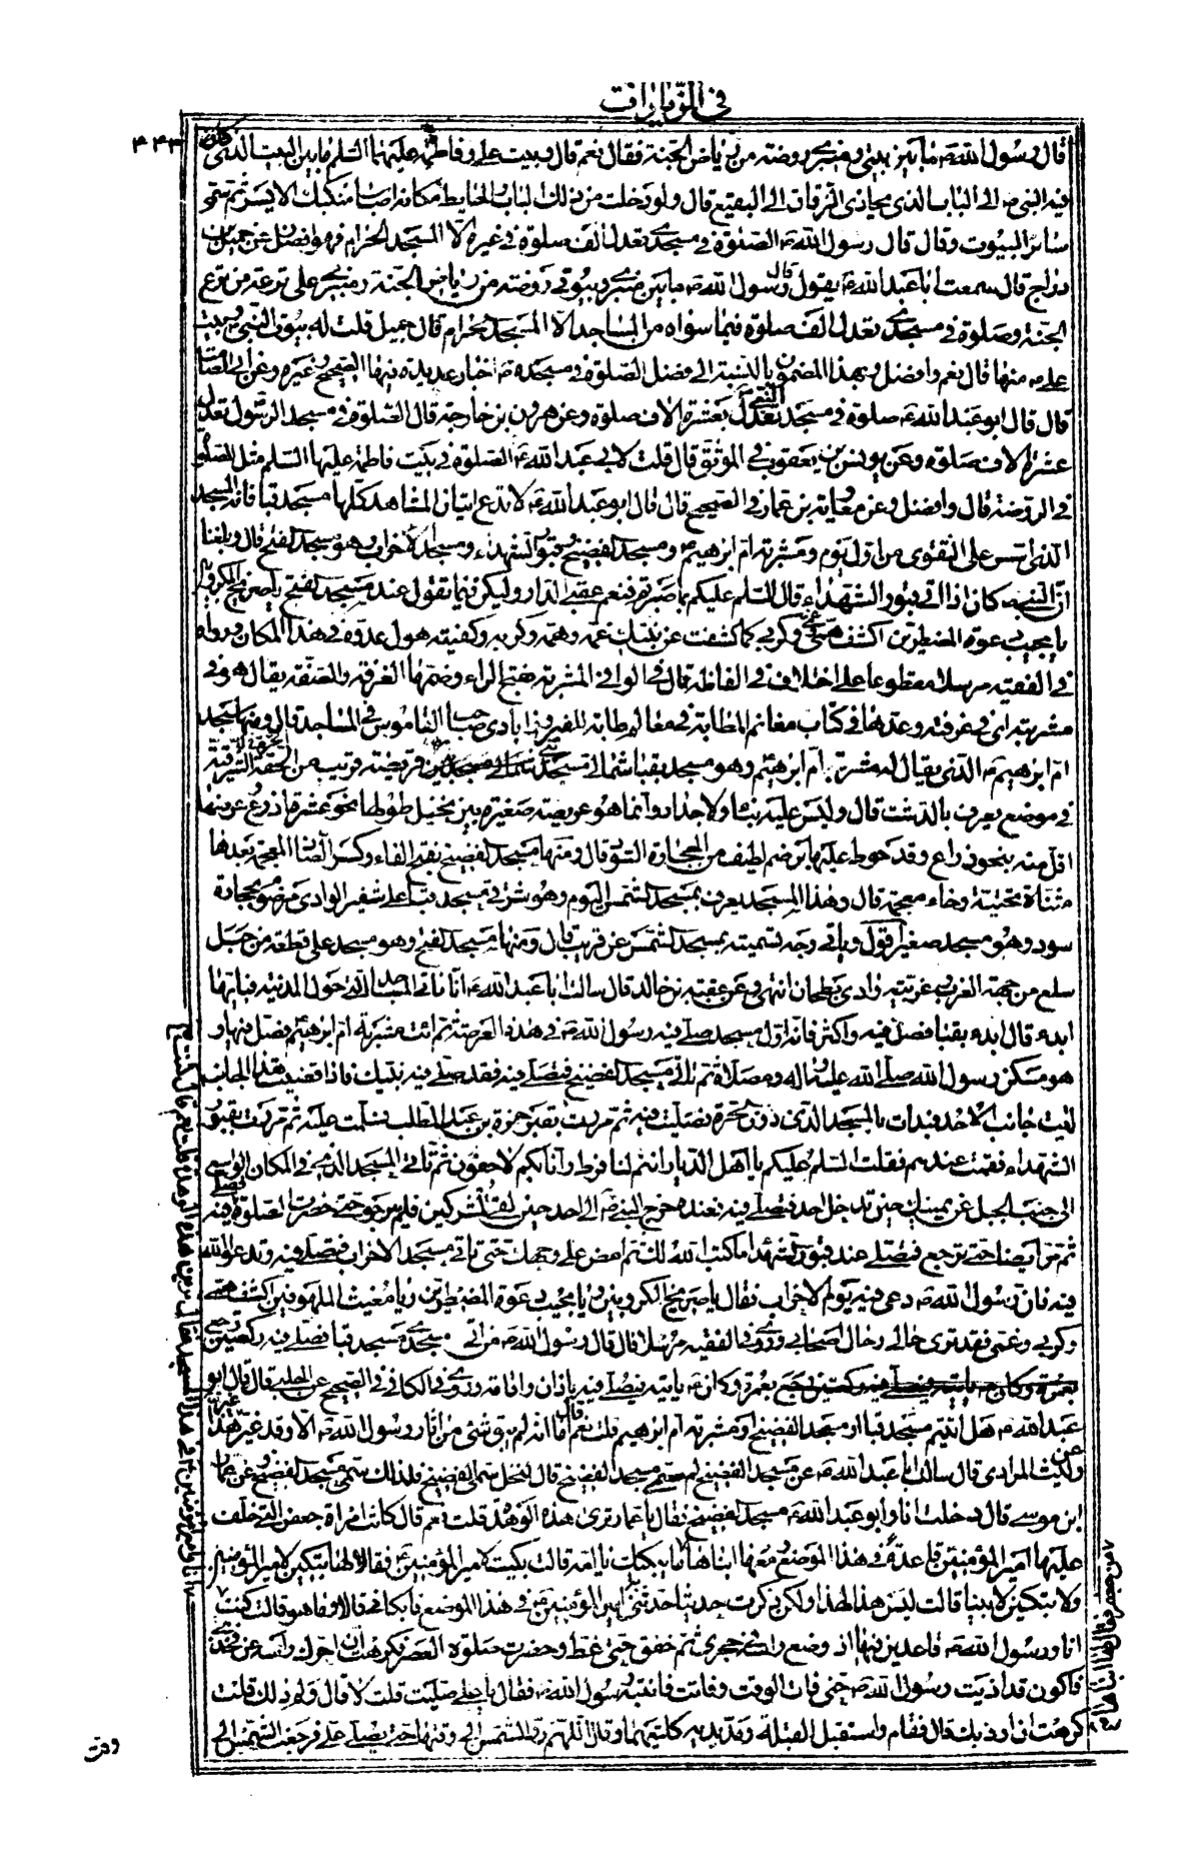 في الزيارات
٤٤٣
قال رسول الله ص ما بين بيتي ومنبري روضة من رياض الجنة فقال نعم قال وبيت علي وفاطمة عليهما السلم ما بين البيت الذي
فيه النبي ص الى الباب الذي يحاذي الزقاق الى البقيع قال ولو دخلت من ذلك الباب والحايط مكانه اصاب منكبك الايسر ثم سمى
سائر البيوت وقال قال رسول الله ص الصلوة في مسجدي تعدل الف صلوة في غيره الا المسجد الحرام فهو افضل وعن جميل بن
دراج قال سمعت ابا عبد الله ع يقول قال رسول الله ص ما بين منبري وبيوتي روضة من رياض الجنة ومنبري على ترعة من ترع
الجنة وصلوة في مسجدي تعدل الف صلوة فيما سواه من المساجد الا المسجد الحرام قال جميل قلت له بيوت النبي وبيت
علي منها قال نعم وافضل وبهذا المضمون بالنسبة الى فضل الصلوة في مسجده ص اخبار عديدة فيها الصحيح وغيره وعن ابي الصامت
قال قال ابو عبد الله ع صلوة في مسجد النبي تعدل بعشرة الاف صلوة وعن هرون بن خارجة قال الصلوة في مسجد الرسول تعدل
عشرة الاف صلوة وعن يونس بن يعقوب في الموثق قال قلت لابي عبد الله ع الصلوة في بيت فاطمة عليها السلم مثل الصلوة
في الروضة قال وافضل وعن معاوية بن عمار في الصحيح قال قال ابو عبد الله ع لا تدع اتيان المشاهد كلها مسجد قبا فانه المسجد
الذي اسس على التقوى من اول يوم ومشربة ام ابرهيم ومسجد الفضيخ وقبور الشهداء ومسجد الاحزاب وهو مسجد الفتح قال وبلغنا
ان النبي ص كان اذا اتى قبور الشهداء قال السلم عليكم بما صبرتم فنعم عقبى الدار وليكن فيما تقول عند مسجد الفتح يا صريخ المكروبين
يا مجيب دعوة المضطرين اكشف عني همي وكربي كما كشفت عن نبيك غمه وهمه وكربه وكفيته هول عدوه في هذا المكان ورواه
في الفقيه مرسلا مقطوعا على اختلاف في الفاظه قال في الوافي المشربة بفتح الراء وضمها الغرفة والصفة يقال هو في
مشربته اي في غرفته وعدها في كتاب مغانم المطابة في معالم طابة للفيروزابادي صاحب القاموس في المساجد قال ومنها مسجد
ام ابرهيم ع الذي يقال له مشربة ام ابرهيم وهو مسجد بقبا شمالي مسجد بني قريضة قريب من الحرة الشرقية
في موضع يعرف بالدشت قال وليس عليه بناء ولا جدار وانما هو عريصة صغيرة بين نخيل طولها نحو عشرة اذرع وعرضها
اقل منه بنحو ذراع وقد حوط عليها برضم لطيف من الحجارة السود قال ومنها مسجد الفضيخ بفتح الفاء وكسر الضاد المعجمة بعدها
مثناة تحتية وخاء معجمة قال وهذا المسجد يعرف بمسجد الشمس اليوم وهو شرقي مسجد قبا على شفير الوادي مرضوم بحجارة
سود وهو مسجد صغير اقول وياتي وجه تسميته بمسجد الشمس عن قريب قال ومنها مسجد الفتح وهو مسجد على قطعة من جبل
سلع من جهة الغرب غربيه وادي بطحان انتهى وعن عقبة بن خالد قال سالت ابا عبد الله ع انا ناتي المساجد التي حول المدينة فبايها
ابدء قال ابدء بقبا فصل فيه واكثر فانه اول مسجد صلى فيه رسول الله ص في هذه العرصة ثم ائت مشربة ام ابرهيم فصل فيها و
هو مسكن رسول الله صلى الله عليه واله ومصلاه ثم تاتي مسجد الفضيخ فتصلي فيه فقد صلى فيه نبيك فاذا قضيت هذا الجانب
اتيت جانب الاحد فبدات بالمسجد الذي دون الحرة فصليت فيه ثم مررت بقبر حمزة بن عبد المطلب فسلمت عليه ثم مررت بقبور
الشهداء فقمت عندهم فقلت السلم عليكم يا اهل الديار انتم لنا فرط وانا بكم لاحقون ثم تاتي المسجد الذي في المكان الواسع
الى جنب الجبل عن يمينك حين تدخل احد فتصلي فيه فعنده خرج النبي ص الى احد حين لقي المشركين فلم يبرحوا حتى حضرت الصلوة فصلى فيه
ثم مر ايضا حتى ترجع فتصلي عند قبور الشهداء ما كتب الله لك ثم امض على وجهك حتى تاتي مسجد الاحزاب فتصلي فيه وتدعو الله
فيه فان رسول الله ص دعى فيه يوم الاحزاب فقال يا صريخ المكروبين ويا مجيب دعوة المضطرين ويا مغيث الملهوفين اكشف همي
وكربي وغمي فقد ترى حالي وحال اصحابي وروى في الفقيه مرسلا قال قال رسول الله ص من اتى مسجدي مسجد قبا فصلى فيه ركعتين رجع
بعمرة وكان ع ياتيه فيصلي فيه باذان واقامة وروى في الكافي في الصحيح عن الحلبي قال قال ابو
عبد الله ع هل اتيتم مسجد قبا او مسجد الفضيخ او مشربة ام ابرهيم قلت نعم قال اما انه لم يبق شئ من اثار رسول الله ص الا وقد غير غير هذا
وعن ليث المرادي قال سالت ابا عبد الله ع عن مسجد الفضيخ لم سمي مسجد الفضيخ قال لنخل سمي الفضيخ فلذلك سمي مسجد الفضيخ وعن عمار
ابن موسى قال دخلت انا وابو عبد الله ع مسجد الفضيخ فقال يا عمار ترى هذه الوهدة قلت نعم قال كانت امراة جعفر التي خلف
عليها امير المؤمنين ع قاعدة في هذا الموضع ومعها ابناها من جعفر فبكت فقال لها ابناها ما يبكيك يا امه قالت بكيت لامير المؤمنين ع فقالا لها تبكين لامير المؤمنين
ولا تبكين لابينا قالت ليس هذا لهذا ولكن ذكرت حديثا حدثني به امير المؤمنين ع في هذا الموضع فابكاني قالا وما هو قالت كنت
انا ورسول الله ص قاعدين فيها اذ وضع راسه في حجري ثم خفق حتى غط وحضرت صلوة العصر فكرهت ان احرك راسه عن فخذي
فاكون قد اذيت رسول الله ص حتى ذهب الوقت وفاتت فانتبه رسول الله ص فقال يا علي صليت قلت لا قال ولم ذلك قلت
كرهت ان اوذيك قال فقام واستقبل القبلة ومد يديه كلتيهما وقال اللهم رد الشمس الى وقتها حتى يصلي علي فرجعت الشمس الى
وقت